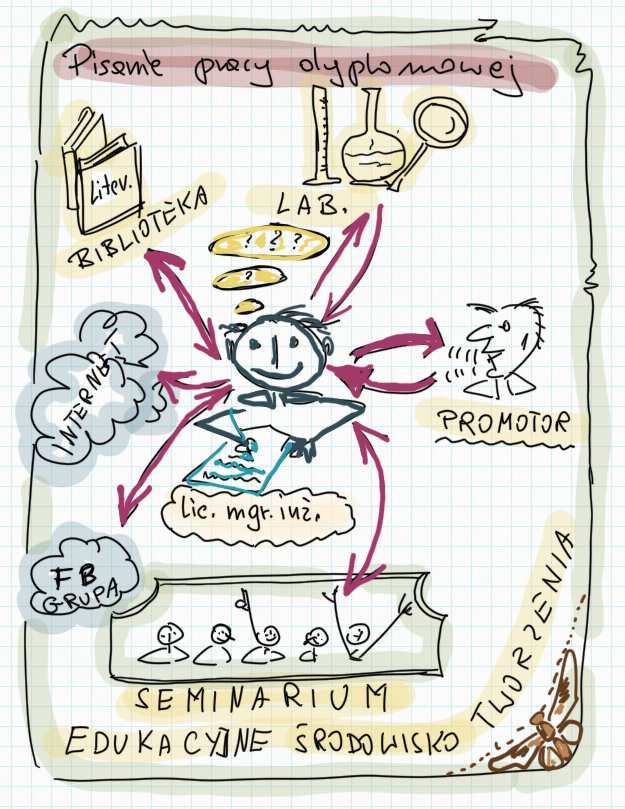 Pisanie pracy dyplomowej
Liter.
BIBLIOTEKA
LAB.
? ? ?
?
INTERNET
PROMOTOR
Lic. mgr. inż.
FB
GRUPA
SEMINARIUM
EDUKACYJNE ŚRODOWISKO TWORZENIA